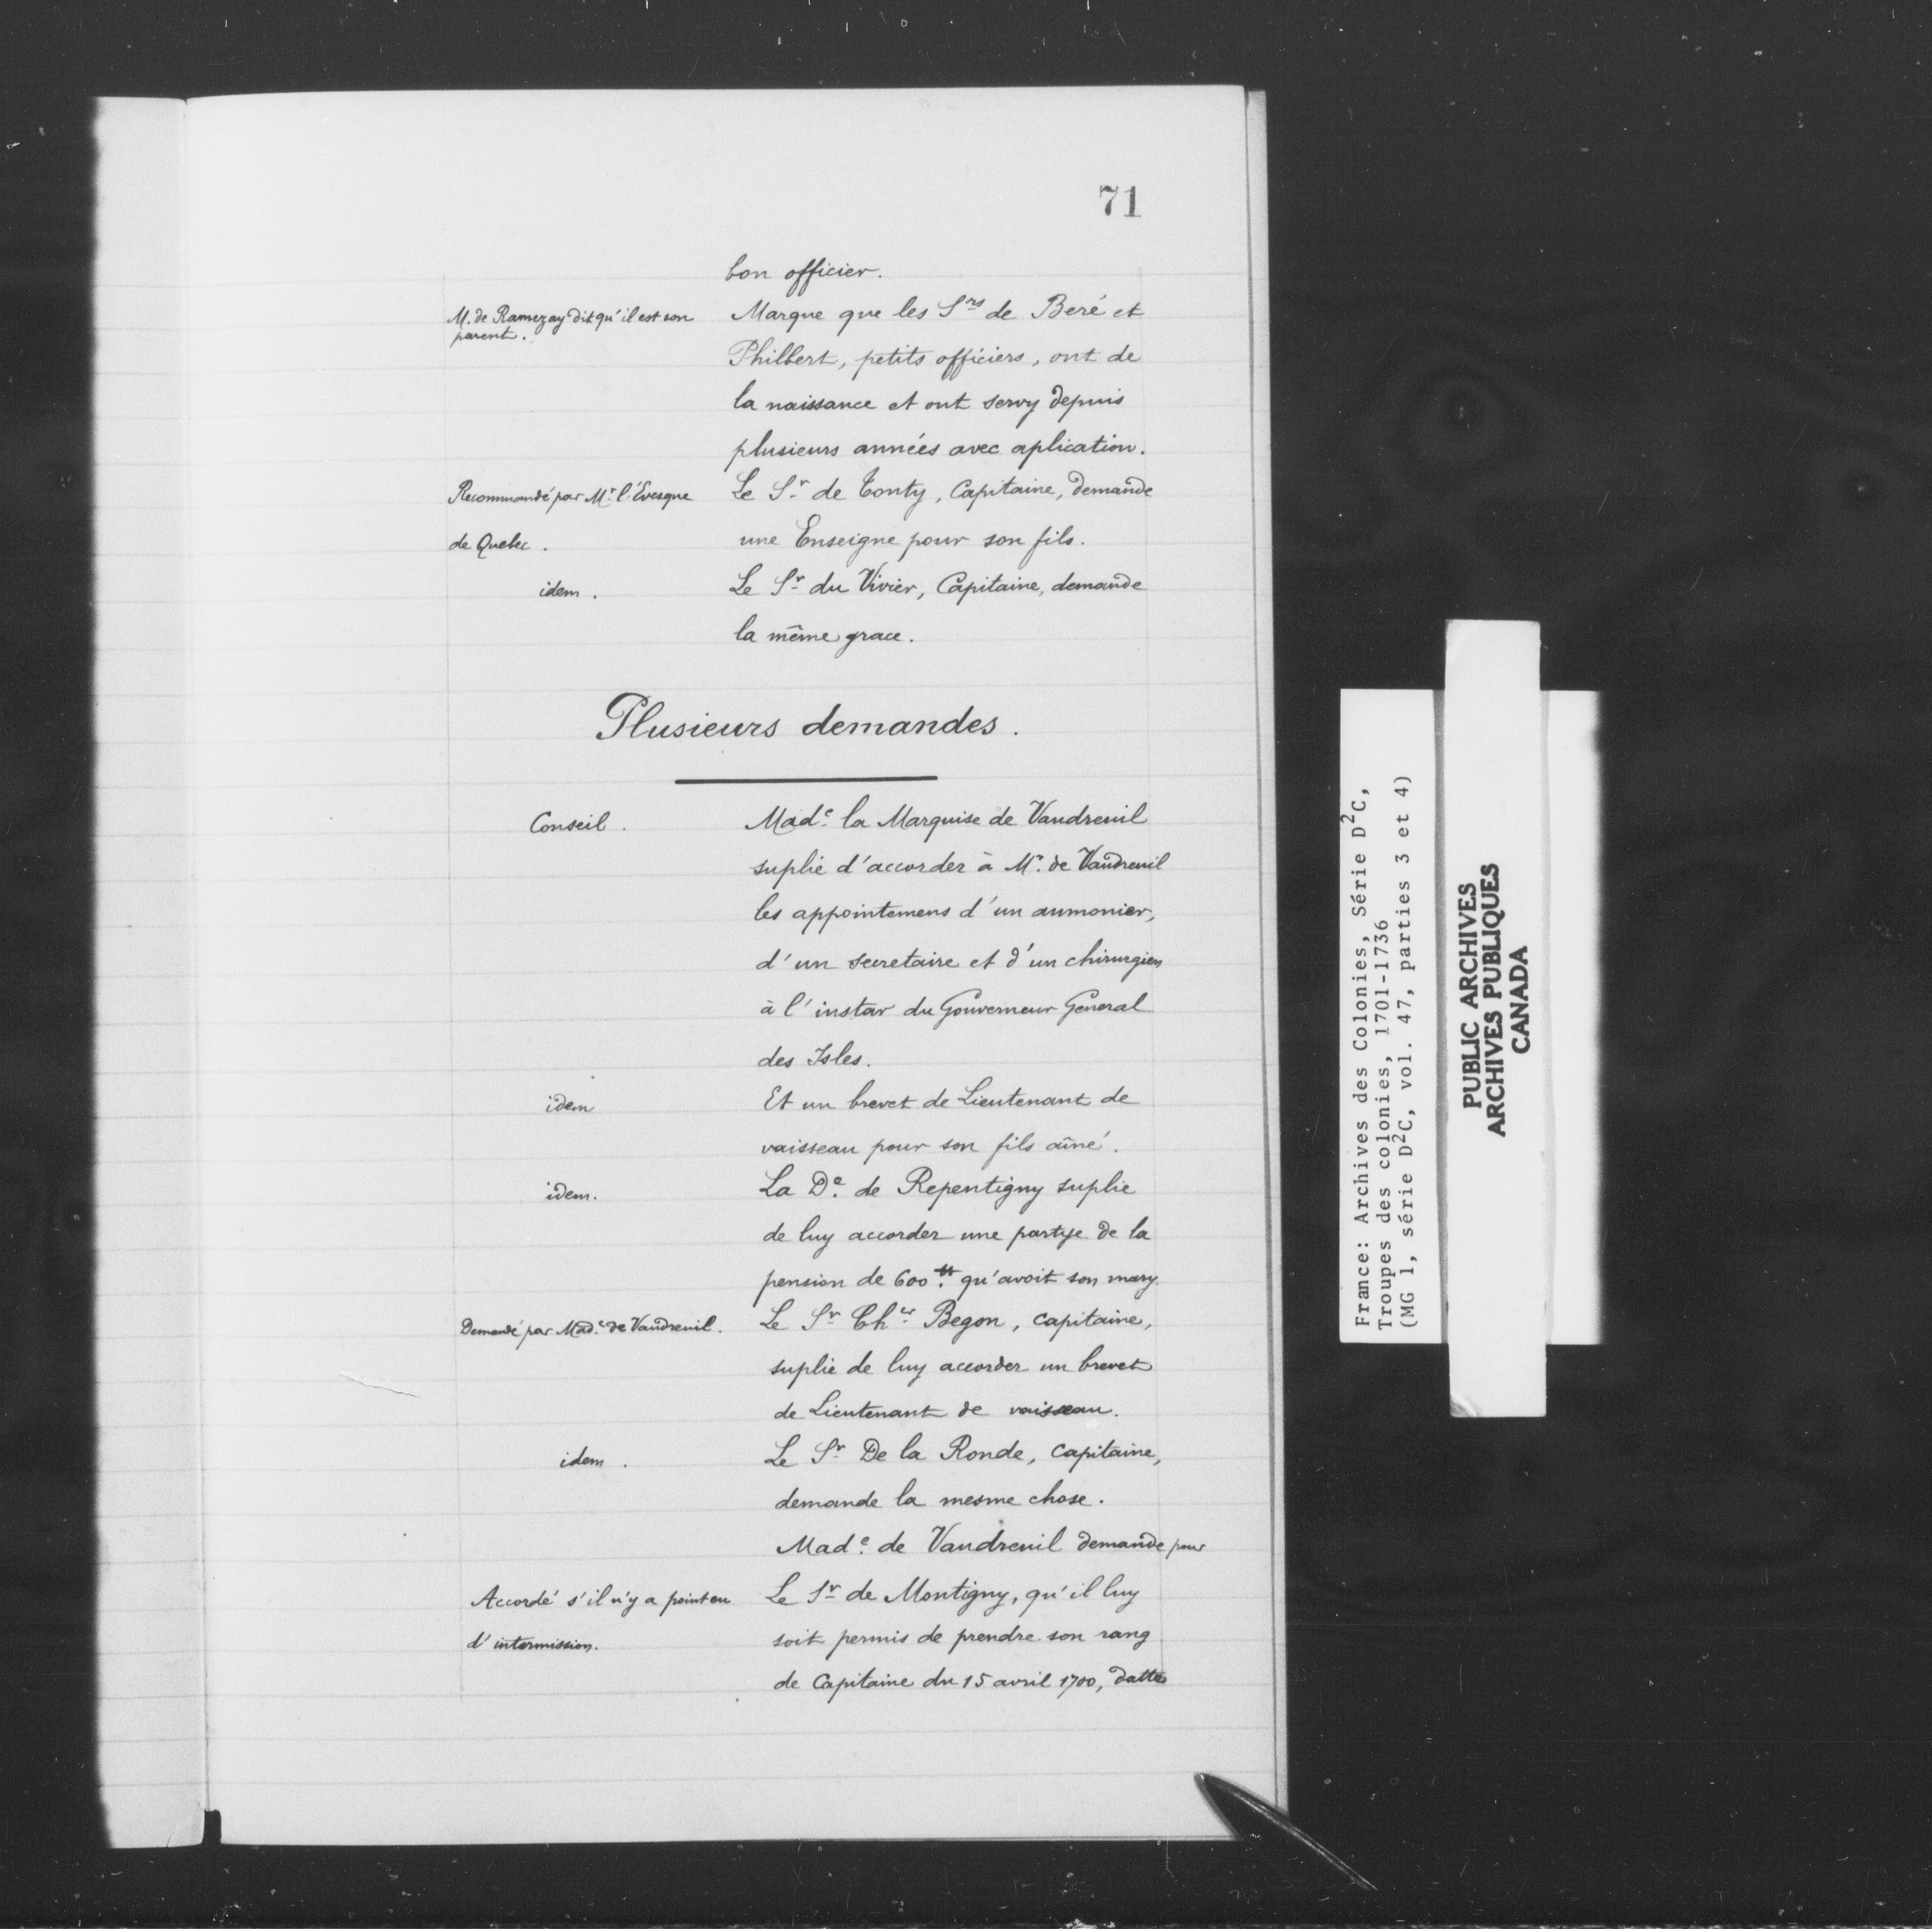 71
bon officier.
M. de Ramezay dit qu'il est son
parent.
Marque que les Srs de Beré et
Philbert, petits officiers, ont de
la naissance et ont servy depuis
plusieurs années avec aplication.
Recommandé par Mr l'Evesque
de Quebec.
Le Sr de Tonty, Capitaine, demande
une Enseigne pour son fils.
idem.
Le Sr du Vivier, Capitaine, demande
la même grace.
Plusieurs demandes.
Conseil.
Made la Marquise de Vaudreuil
suplie d'accorder à Mr. de Vaudreuil
les appointemens d'un aumonier,
d'un secretaire et d'un chirurgien
à l'instar du Gouverneur General
des Isles.
idem
Et un brevet de Lieutenant de
vaisseau pour son fils aîné.
idem.
La De. de Repentigny suplie
de luy accorder une partye de la
pension de 600 ₶ qu'avoit son mary
Demandé par Made. de Vaudreuil.
Le Sr Cher Begon, capitaine,
suplie de luy accorder un brevet
de Lieutenant de vaisseau.
idem.
Le Sr De la Ronde, capitaine,
demande la mesme chose.
Made. de Vaudreuil demande pour
Accordé s'il n'y a point eu
d'intermission.
Le Sr de Montigny, qu'il luy
soit permis de prendre son rang
de Capitaine du 15 avril 1700, datte
France: Archives des Colonies, Série D²C,
Troupes des colonies, 1701-1736
(MG 1, série D²C, vol. 47, parties 3 et 4)
PUBLIC ARCHIVES
ARCHIVES PUBLIQUES
CANADA